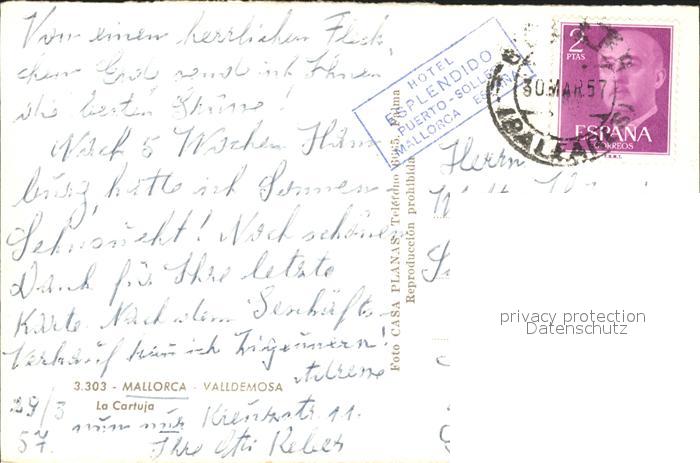 Von einem herrlichen Fleck-
chen Erde sende ich Ihnen
die besten Grüße.
Nach 5 Wochen Ham-
burg hatte ich Sonnen-
Sehnsucht! Noch schönen
Dank für Ihre letzte
Karte. Nach dem Geschäfts-
Verkauf kann ich zigeunern!
Adresse
29/3 nun nur Kreuzstr. 11.
57. Ihre
3.303 - MALLORCA - VALLDEMOSA
La Cartuja
Foto CASA PLANAS. Teléfono Palma
Reproducción prohibida
HOTEL
ESPLENDIDO
PUERTO-SOLLER
MALLORCA ESPAÑA
2
PTAS
30 MAR 57
BALEARES
ESPAÑA
CORREOS
F.N.M.T.
Herrn
privacy protection
Datenschutz